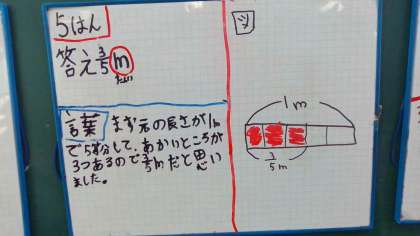 5はん
答え3/5m
たんい
言葉 まず元の長さが1m
で5等分して、あかいところが
3つあるので3/5mだと思い
ました。
図
1m
3/5m